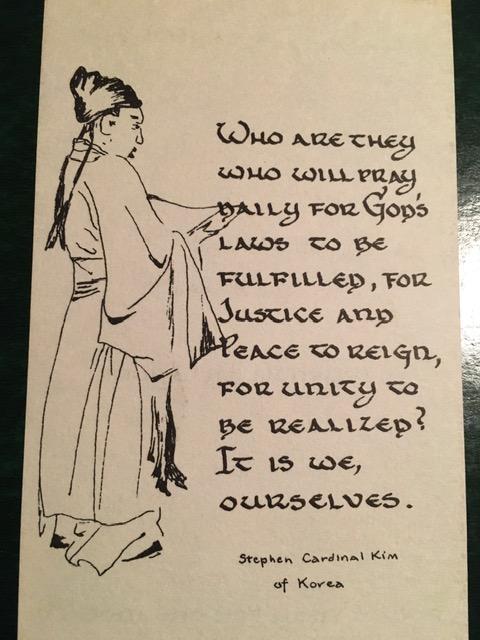 Who are they
who will pray
daily for God's
laws to be
fulfilled, for
Justice and
Peace to reign,
for unity to
be realized?
It is we,
ourselves.
Stephen Cardinal Kim
of Korea